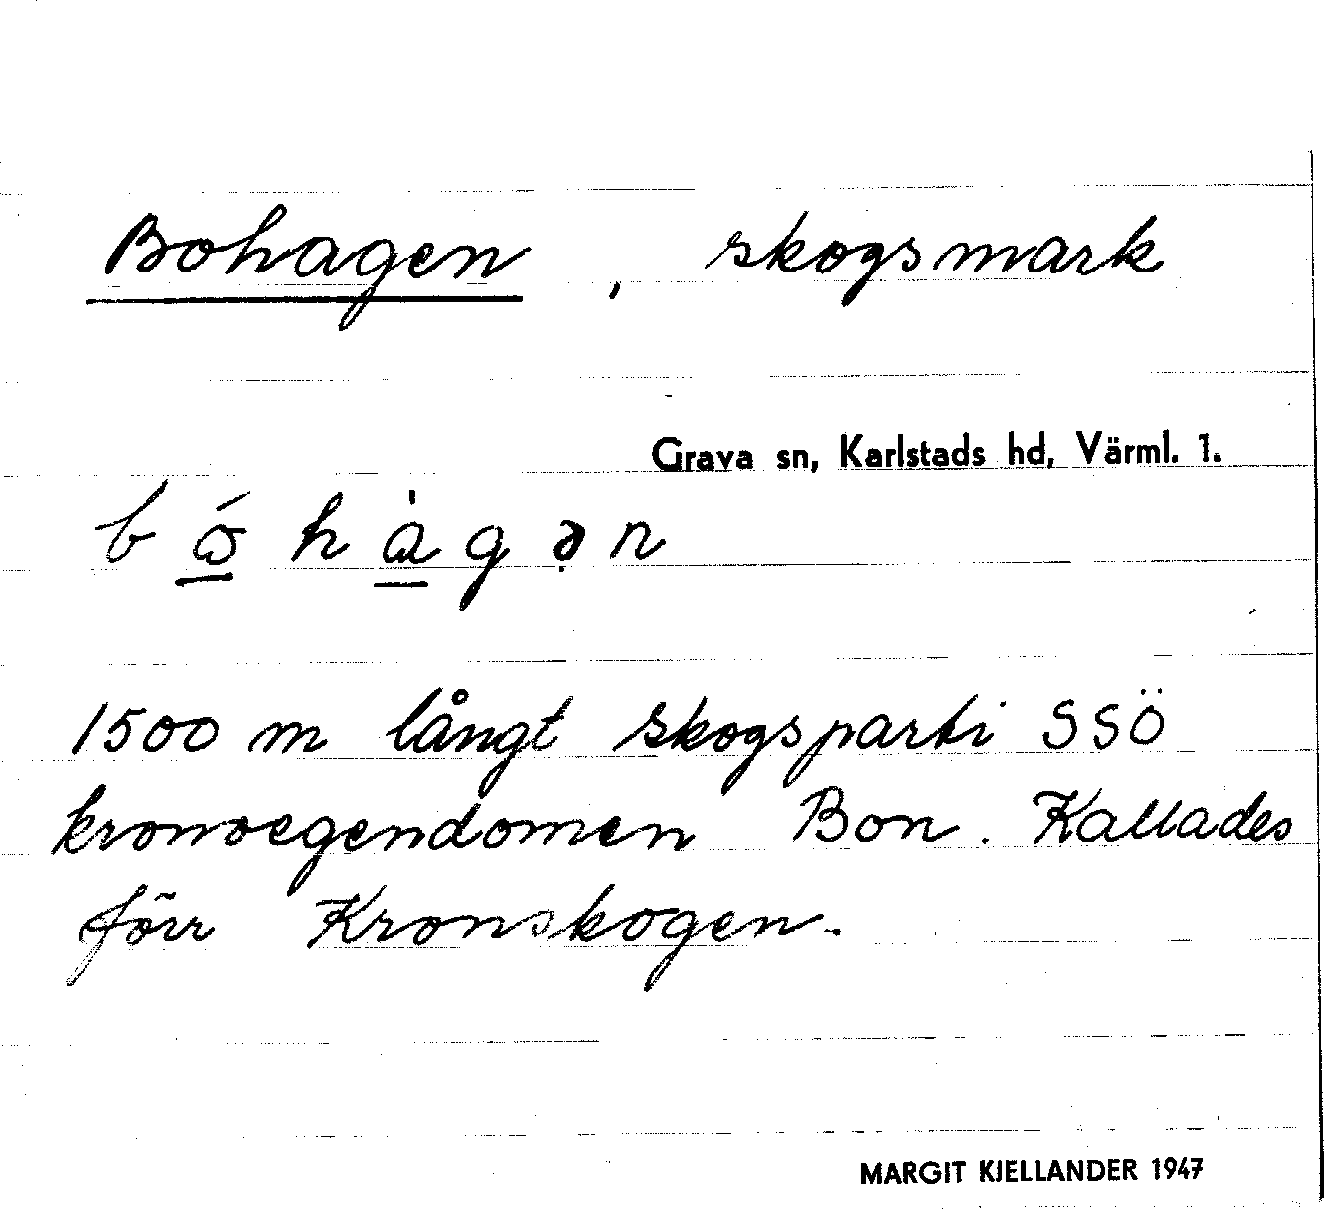 Bohagen, skogsmark
Grava sn, Karlstads hd, Värml. 1.
bó̲hà̲gə̣n
1500 m långt skogsparti SSÖ
kronoegendomen Bon. Kallades
förr Kronskogen.
MARGIT KJELLANDER 1947